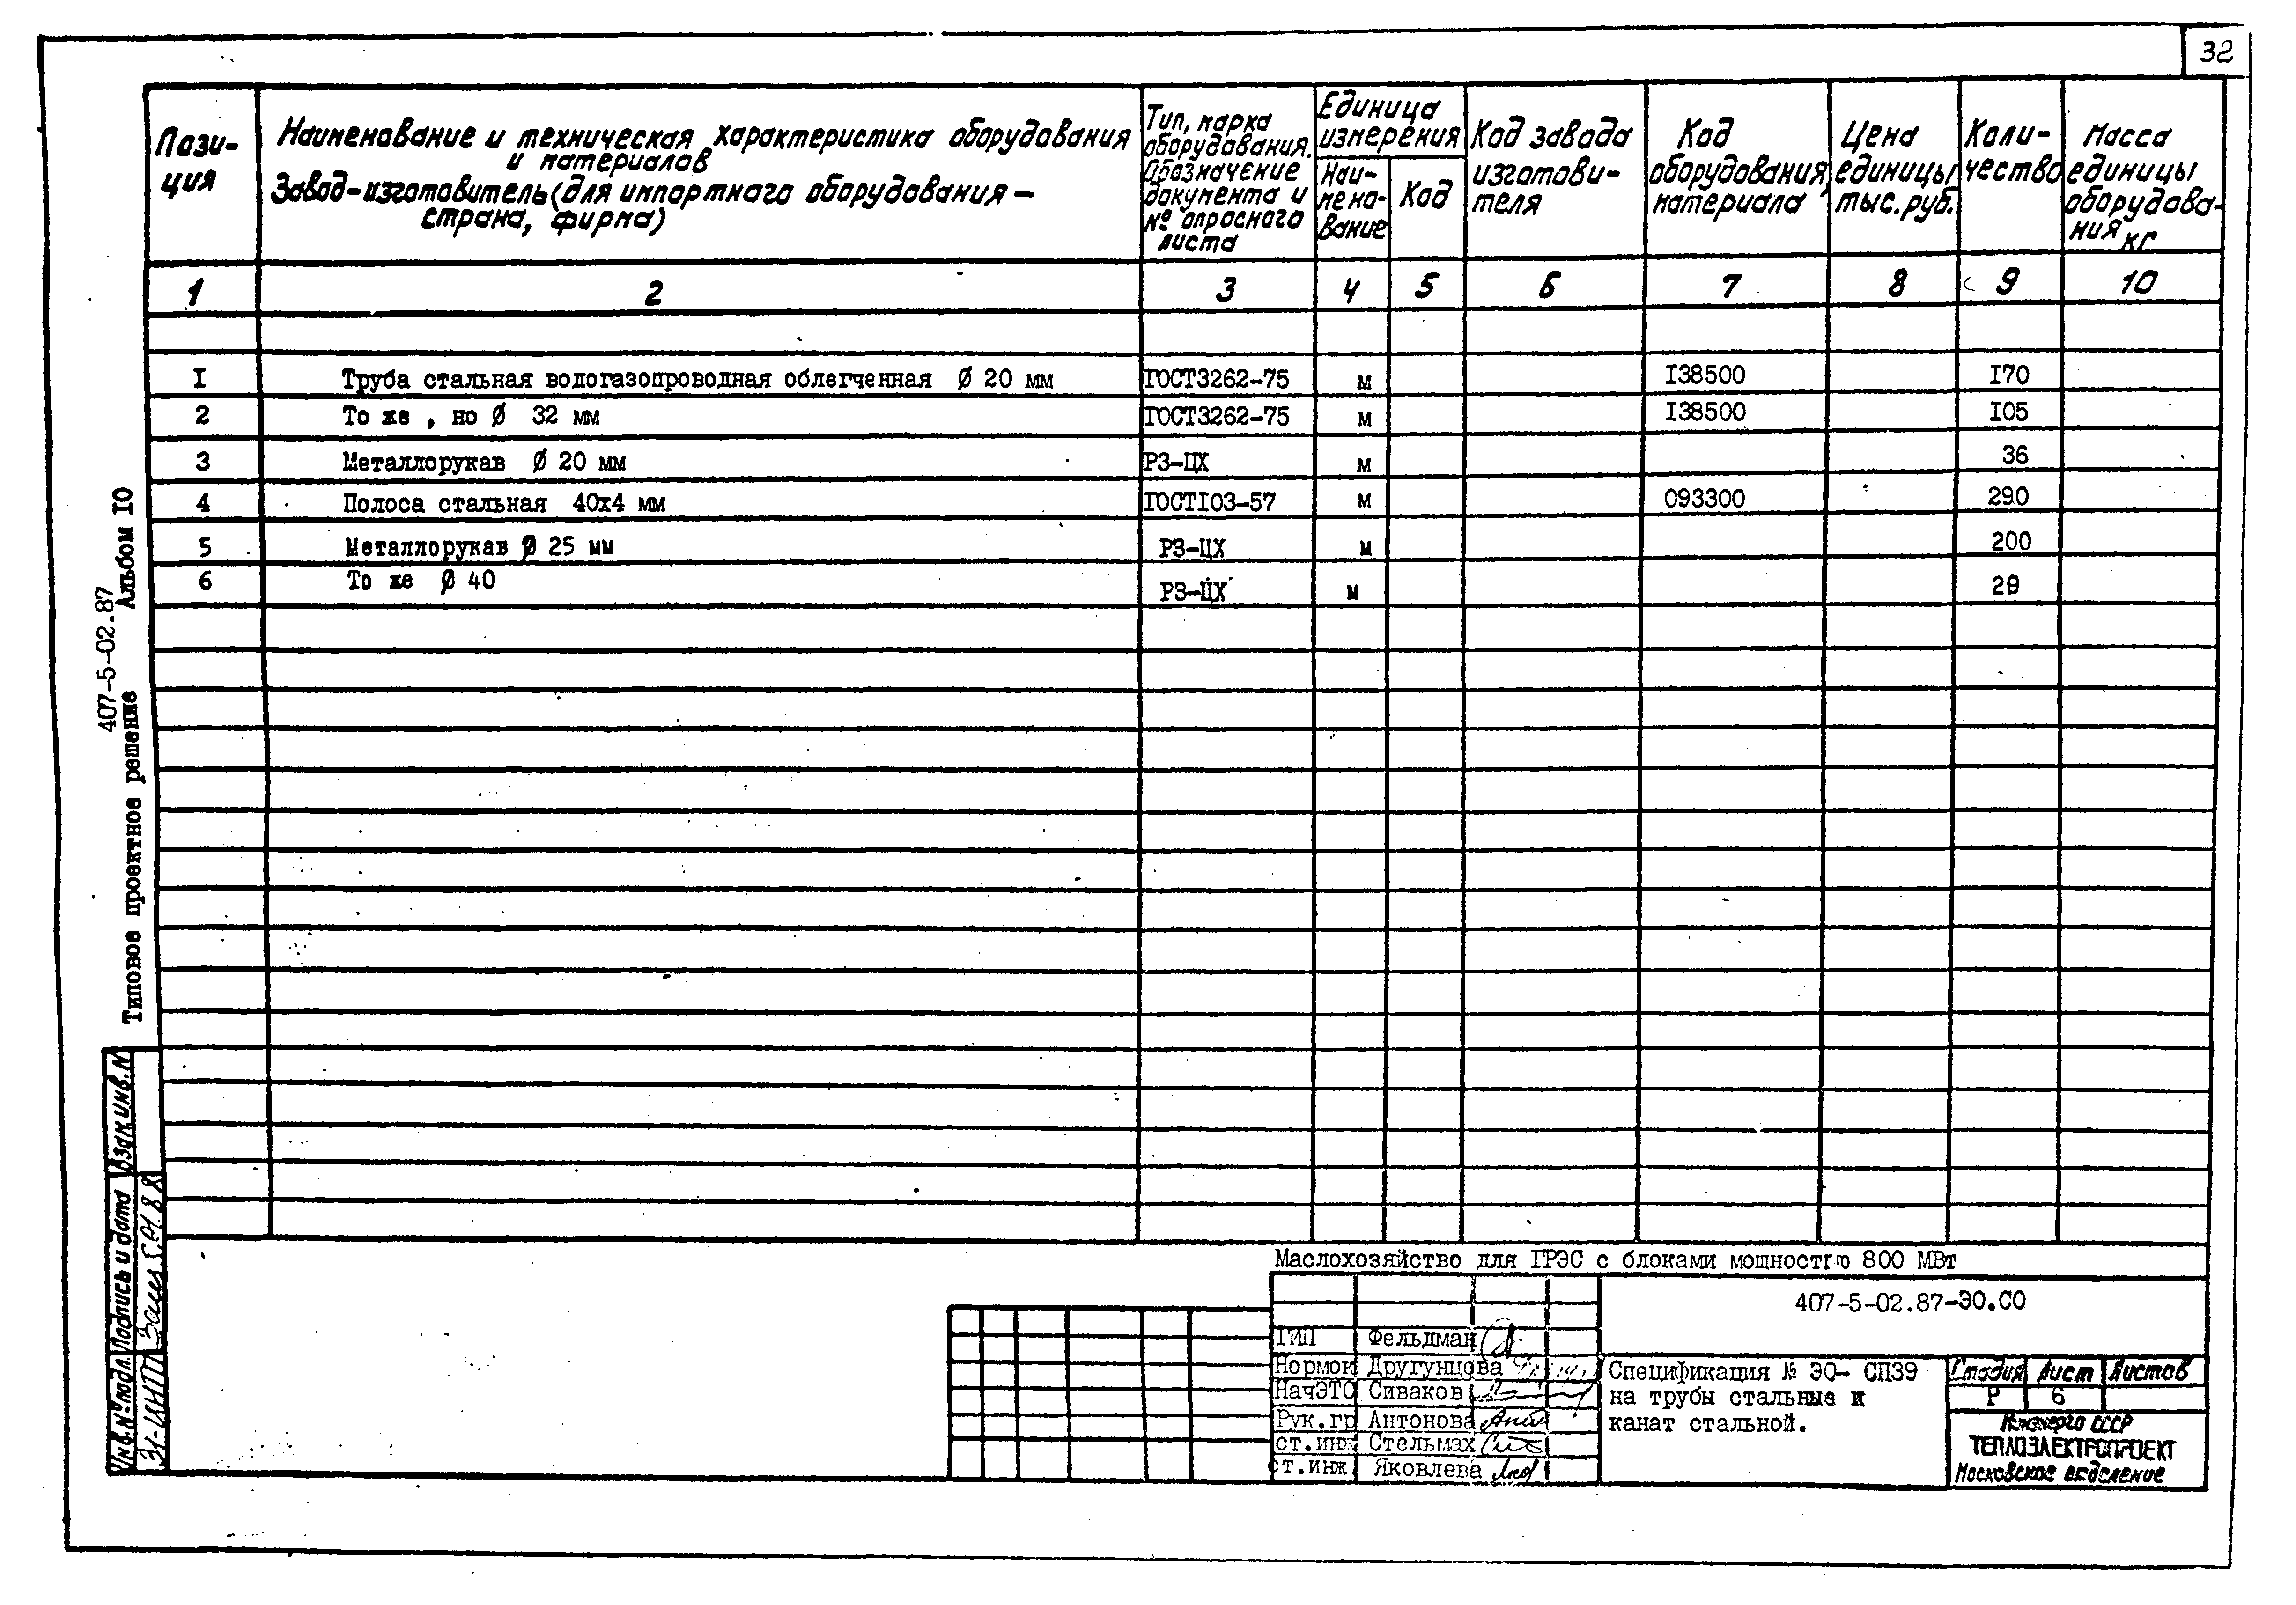 32
Пози-
ция
Наименование и техническая характеристика оборудования
и материалов
Завод-изготовитель (для импортного оборудования –
страна, фирма)
Тип, марка
оборудования.
Обозначение
документа и
№ опросного
листа
Единица
измерения
Наи-
мено-
вание
Код
Код завода
изготови-
теля
Код
оборудования,
материала
Цена
единицы
тыс.руб.
Коли-
чество
Масса
единицы
оборудова-
ния кг
1 2 3 4 5 6 7 8 9 10
I Труба стальная водогазопроводная облегченная Ø 20 мм ГОСТ3262-75 м I38500 I70
2 То же , но Ø 32 мм ГОСТ3262-75 м I38500 I05
3 Металлорукав Ø 20 мм РЗ-ЦХ м 36
4 Полоса стальная 40х4 мм ГОСТI03-57 м 093300 290
5 Металлорукав Ø 25 мм РЗ-ЦХ м 200
6 То же Ø 40 РЗ-ЦХ м
Типовое проектное решение
407-5-02.87
Альбом IO
Взам.инв.N
Подпись и дата
Инв.№ подл.
Маслохозяйство для ГРЭС с блоками мощностью 800 МВт
407-5-02.87-ЭО.СО
ГИП Фельдман
Нормок Другунцова
НачЭТО Сиваков
Рук.гр Антонова
ст.инж Стельмах
ст.инж. Яковлева
Спецификация № ЭО- СП39
на трубы стальные и
канат стальной.
Стадия Лист Листов
Р 6
Минэнерго СССР
ТЕПЛОЭЛЕКТРОПРОЕКТ
Московское отделение